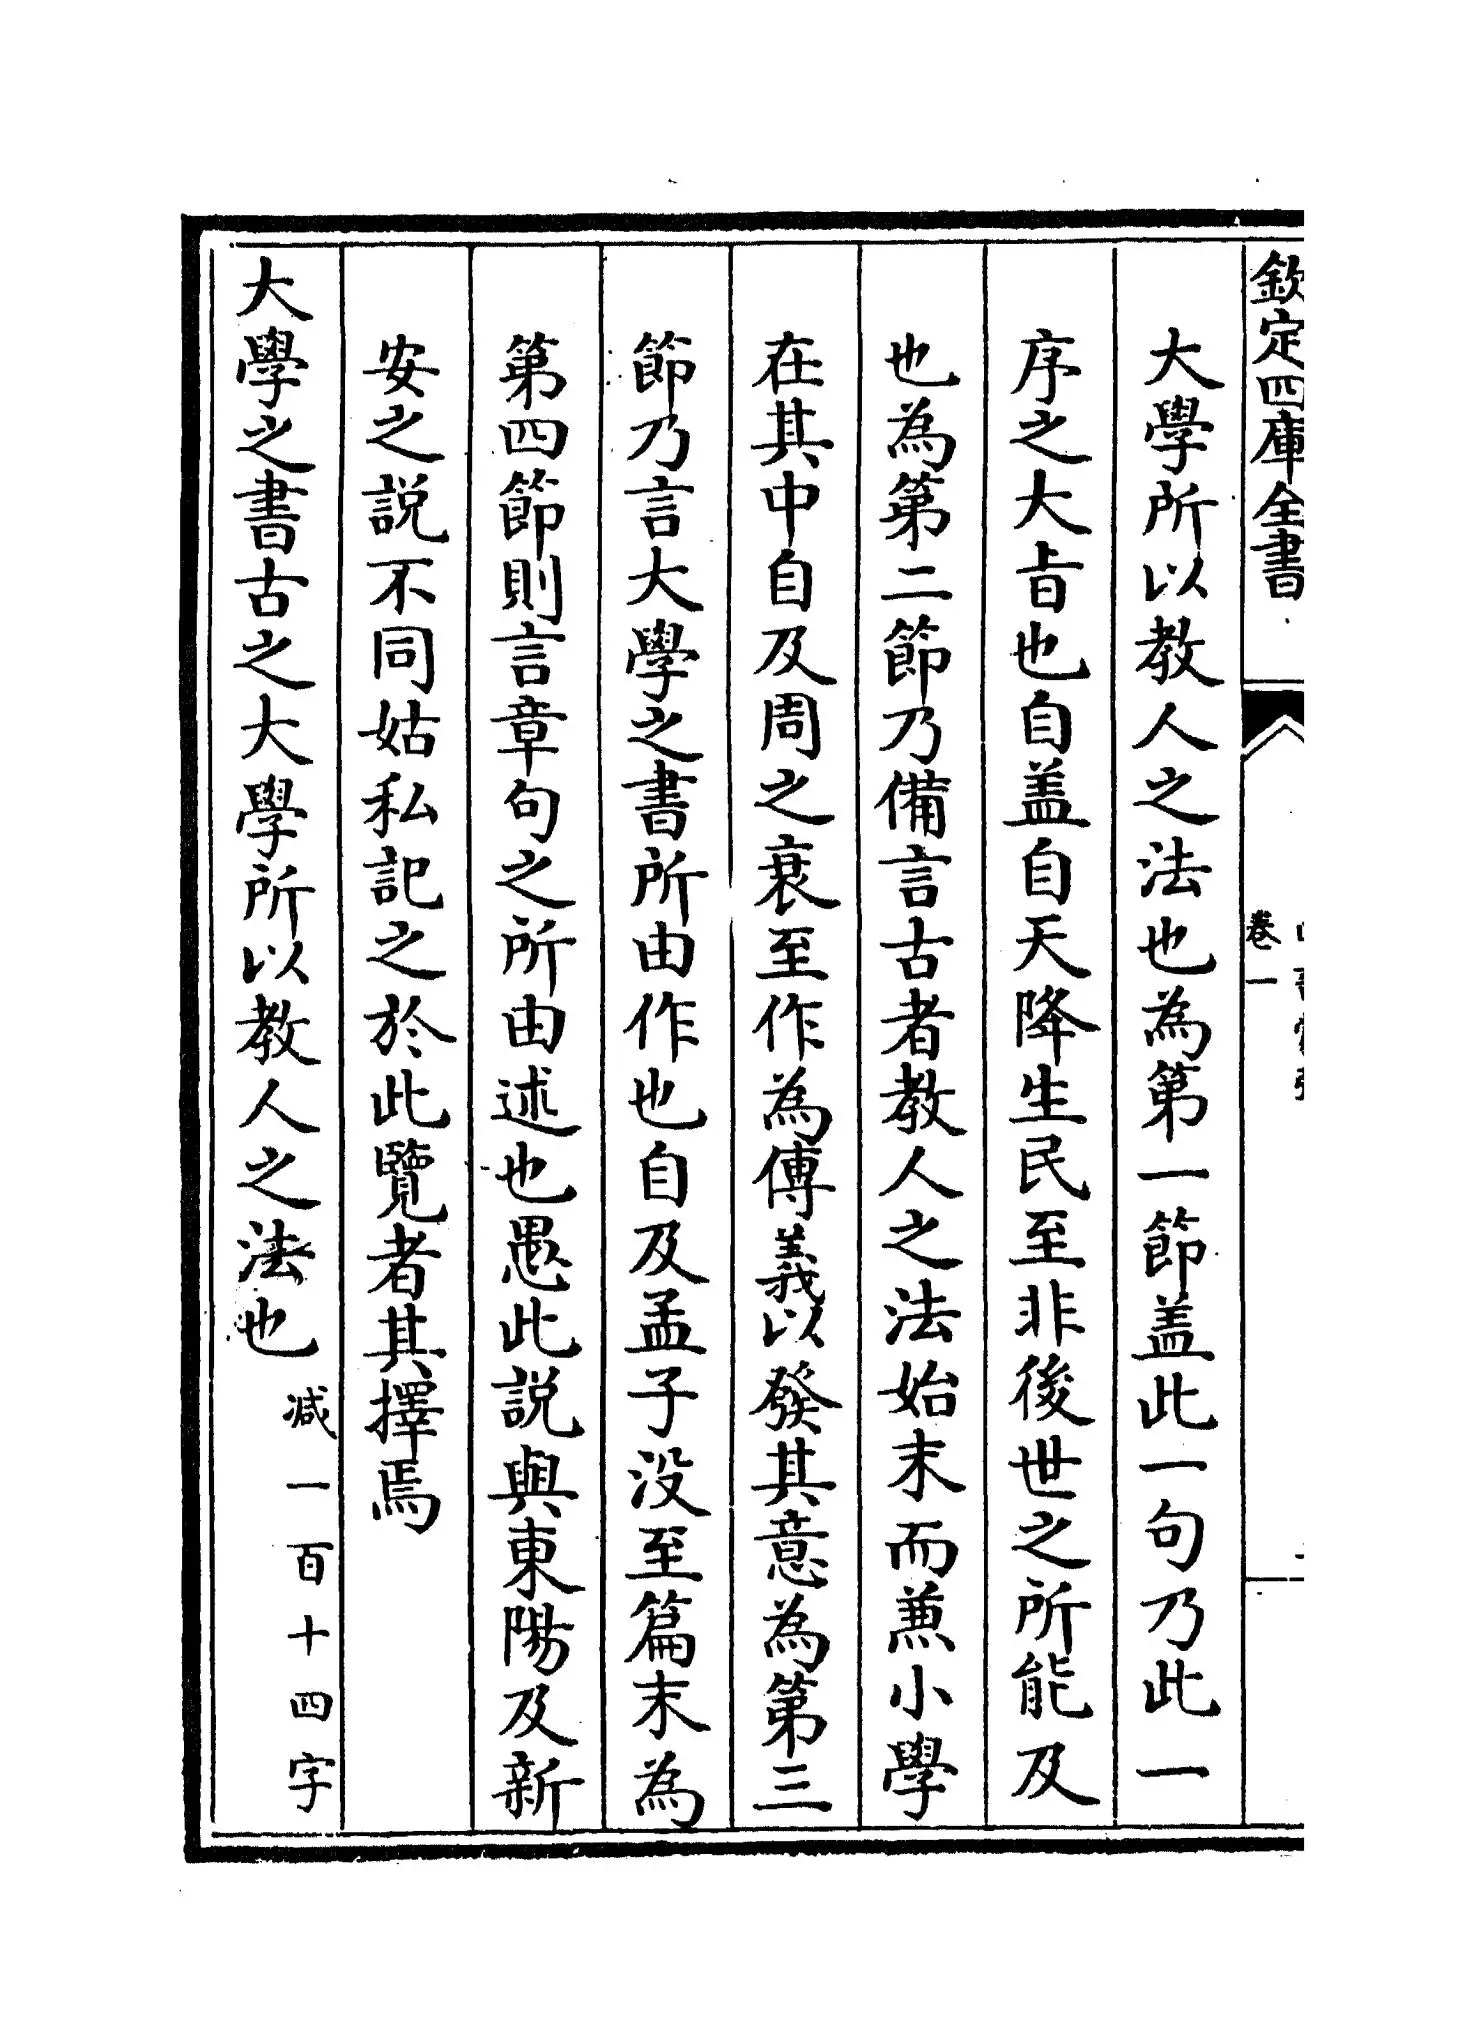 欽定四庫全書
卷一
大學所以教人之法也為第一節盖此一句乃此一
序之大㫖也自盖自天降生民至非後世之所能及
也為第二節乃備言古者教人之法始末而兼小學
在其中自及周之衰至作為傳義以發其意為第三
節乃言大學之書所由作也自及孟子没至篇末為
第四節則言章句之所由述也愚此説與東陽及新
安之説不同姑私記之於此覽者其擇焉
大學之書古之大學所以教人之法也减一百十四字